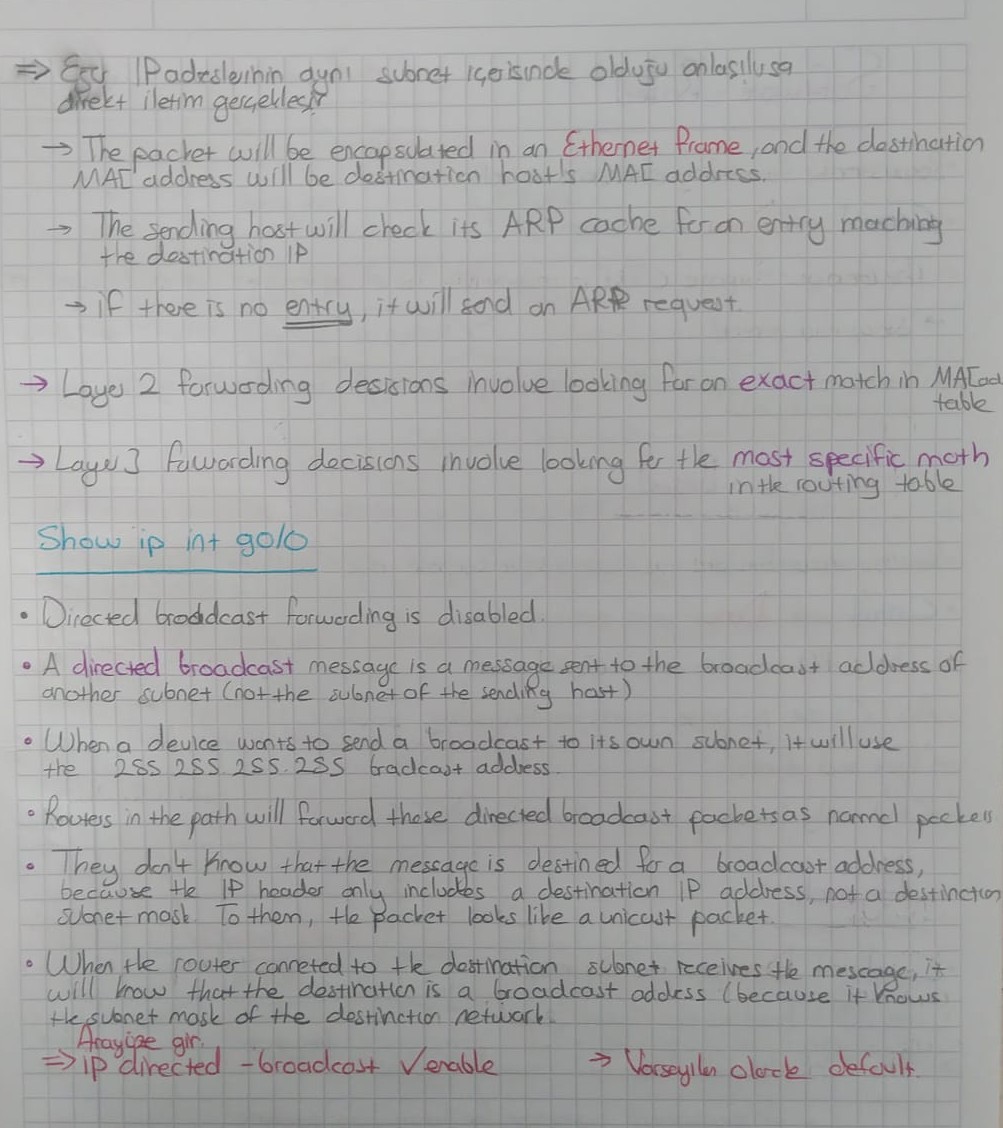 ⇒ Eğer IP adreslerinin aynı subnet içerisinde olduğu anlaşılırsa
direkt iletim gerçekleşir
→ The packet will be encapsulated in an Ethernet frame, and the destination
MAC address will be destination host's MAC address.
→ The sending host will check its ARP cache for an entry maching
the destination IP
→ if there is no entry, it will send an ARP request.
→ Layer 2 forwarding desisions involve looking for an exact match in MAC ad
table
→ Layer 3 fowarding decisions involve looking for the most specific math
in the routing table
Show ip int g0/0
• Directed broadcast forwarding is disabled.
• A directed broadcast message is a message sent to the broadcast address of
another subnet (not the subnet of the sending host)
• When a device wants to send a broadcast to its own subnet, it will use
the 255.255.255.255 bradcast address.
• Routers in the path will forward these directed broadcast packets as normal packets
• They don't know that the message is destined for a broadcast address,
because the IP header only includes a destination IP address, not a destination
subnet mask. To them, the packet looks like a unicast packet.
• When the router conneted to the destination subnet receives the message, it
will know that the destination is a broadcast address (because it knows
the subnet mask of the destination network.
Arayüze gir.
⇒ ip directed-broadcast √ enable → Varsayılan olarak default.